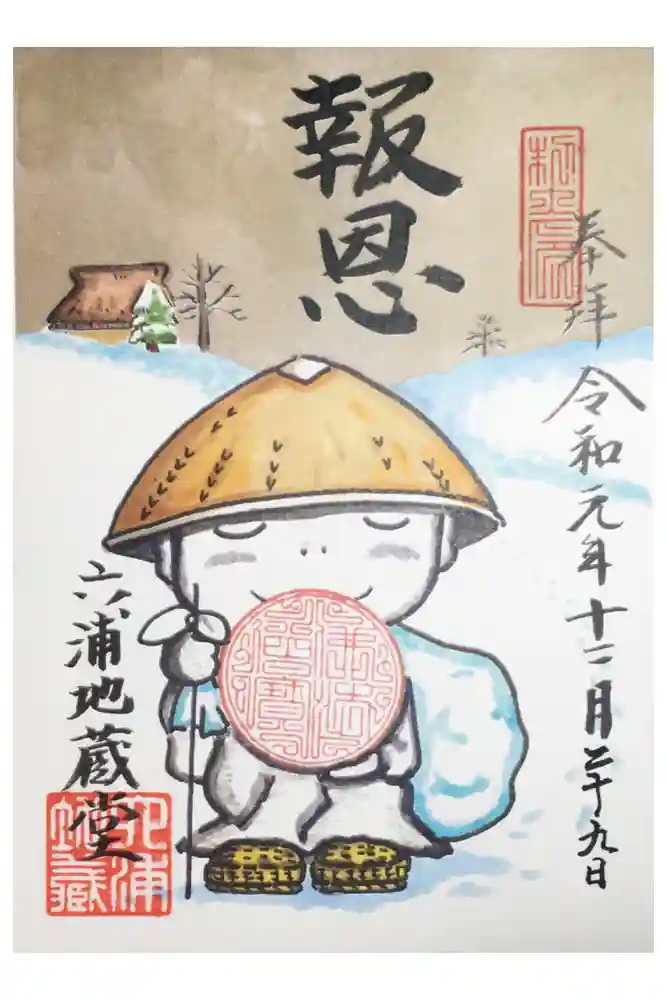 奉拝 令和元年十二月二十九日
報恩
六浦地蔵堂
佛法僧寶
六浦地蔵